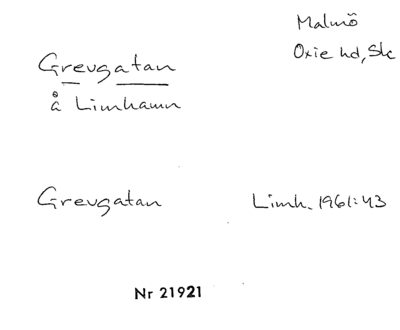 Malmö
Oxie hd, Sk
Grevgatan
å Limhamn
Grevgatan Limh. 1961:43
Nr 21921